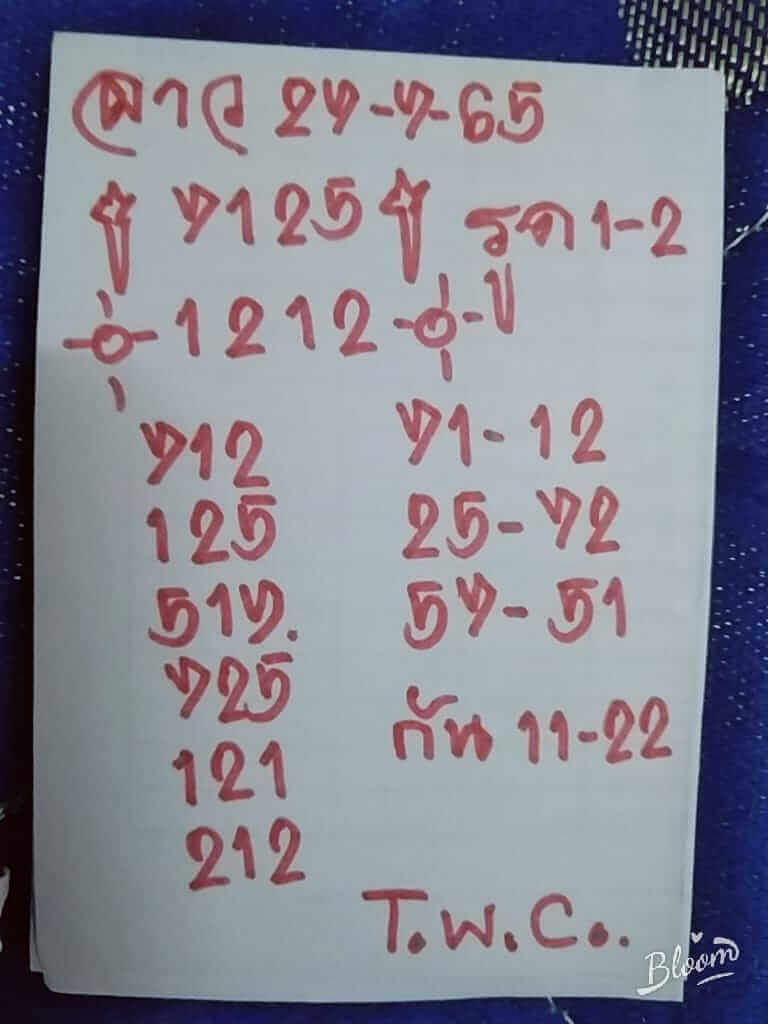 ลาว 27-7-65
7125 รูด 1-2
1212 - ปู
712
125
517.
725
121
212
71-12
25-72
57-51
กัน 11-22
T.W.C..
Bloom